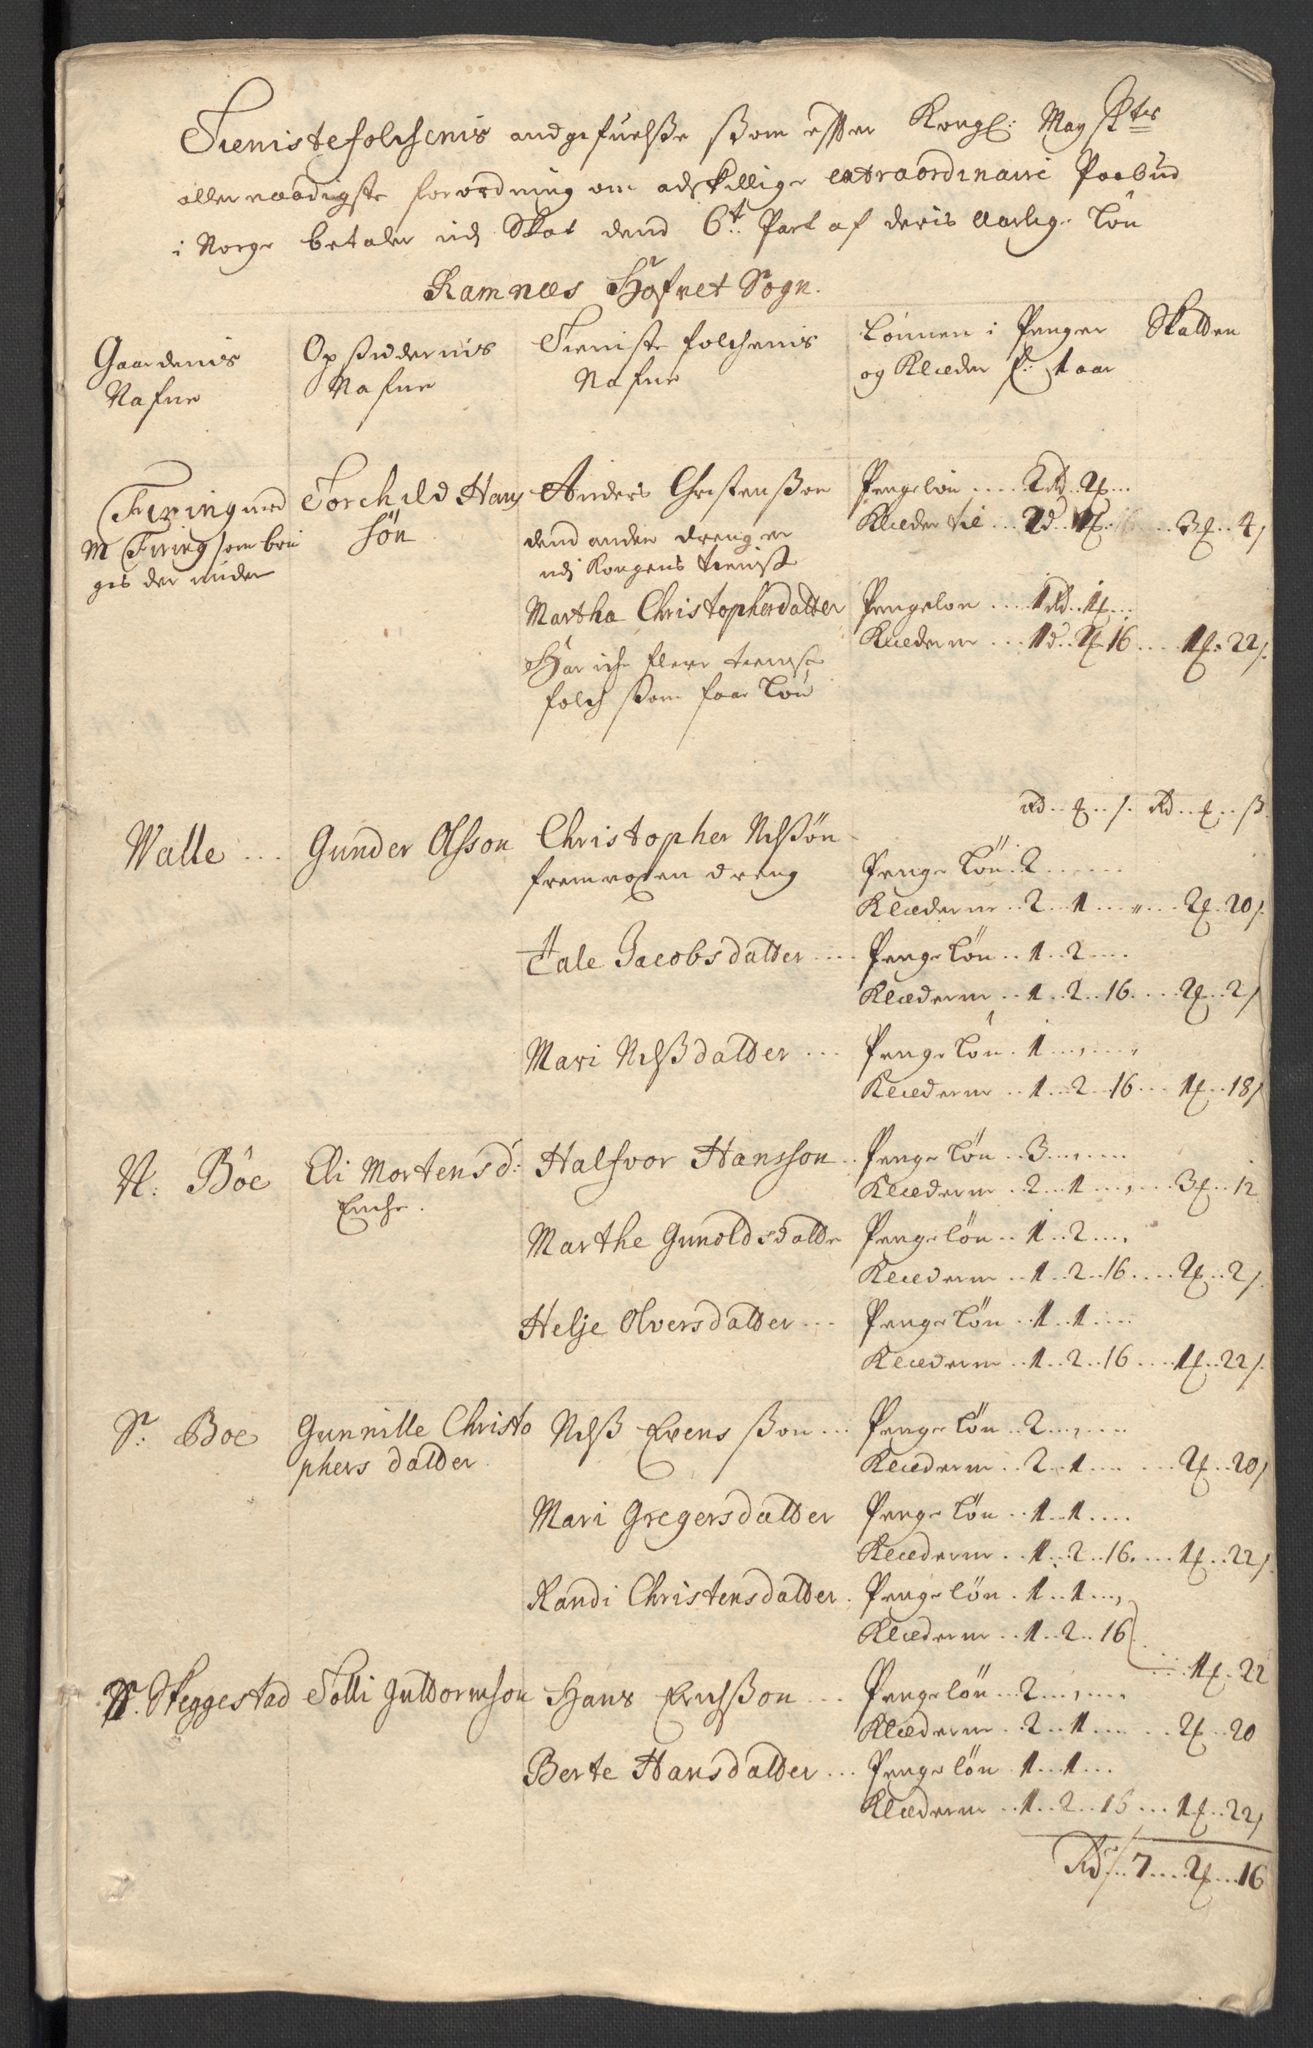 Tienistefolchenis andgifuelsße ßom effter Kongl: May ttes
aller naadigste forordning om adskillige extraordinaire Paabud
i Norge betaler udj Skat dend 6te Part af deris aarlige Løn
Ramnæs Hofvet Sogn.
Gaardenis Nafne
Opsiddernis Nafne
Tieniste folchenis Nafne
Lønnen i Penger og Klæder p: 1 aar
Skatten
Firing med
M Firing som brü
ges der under
Torchild Han
søn
Anders Christenßon
dend anden dreng er
udj Kongens tienist
Pengeløn .... 2 Rd 2 ...
Klæder til ... 3 .. 4
Martha Christopherdatter Pengeløn ... 1 Rd. 1 ...
Har iche flere tienist
folch ßom faar Løn
Klæderne ... 1 d 2 16 .... 1 .. 22
Rd .. .. s. Rd .. .. ß
Walle ... Gunder Olsson Christopher Nilßøn
fremvoxen dreng
Penge Løn 2 ......
Klæderne .. 2 .. 1 .... 2 .. 20
Tale Jacobsdatter .... Penge Løn .. 1 .. 2 ....
Klæderne .. 1 .. 2 .. 16 .... 2 .. 2
Mari Nilßdatter ... Penge Løn . 1 ......
Klæderne .. 1 .. 2 16 ... 1 .. 18
N: Böe Eli Mortensd: Halfvor Hansson .. Penge Løn .. 3 ......
Enche.
Klæderne .. 2 .. 1 ...... 3 .. 12
Marthe Gunoldsdatte Pengeløn .. 1 .. 2 ....
Klæderne .. 1 .. 2 .. 16 .... 2 .. 2
Helje Olversdatter ... Penge Løn .. 1 .. 1 ....
Klæderne .. 1 .. 2 .. 16 .... 1 .. 22
Sr: Boe Gunnille Christo
phers datter.
Nilß Evens ßon ... Penge Løn .. 2 ......
Klæderne .. 2 .. 1 .... 2 .. 20
Mari Gregersdatter Penge Løn .. 1 .. 1 ....
Klæderne .. 1 .. 2 .. 16 .... 1 .. 22
Randi Christensdatter . Pengeløn .. 1 .. 1 ...
Klæderne .. 1 .. 2 .. 16
... 1 .. 22
Skeggestad Tolli Guttormson Hans Erichßon ... Pengeløn .. 2 ......
Klæderne .. 2 .. 1 .... 2 .. 20
Berte Hansdatter ... Pengeløn . 1 .. 1 ...
Klæderne .. 1 .. 2 .. 16 ... 1 .. 22
Rdr ... 7 .... 2 ... 16